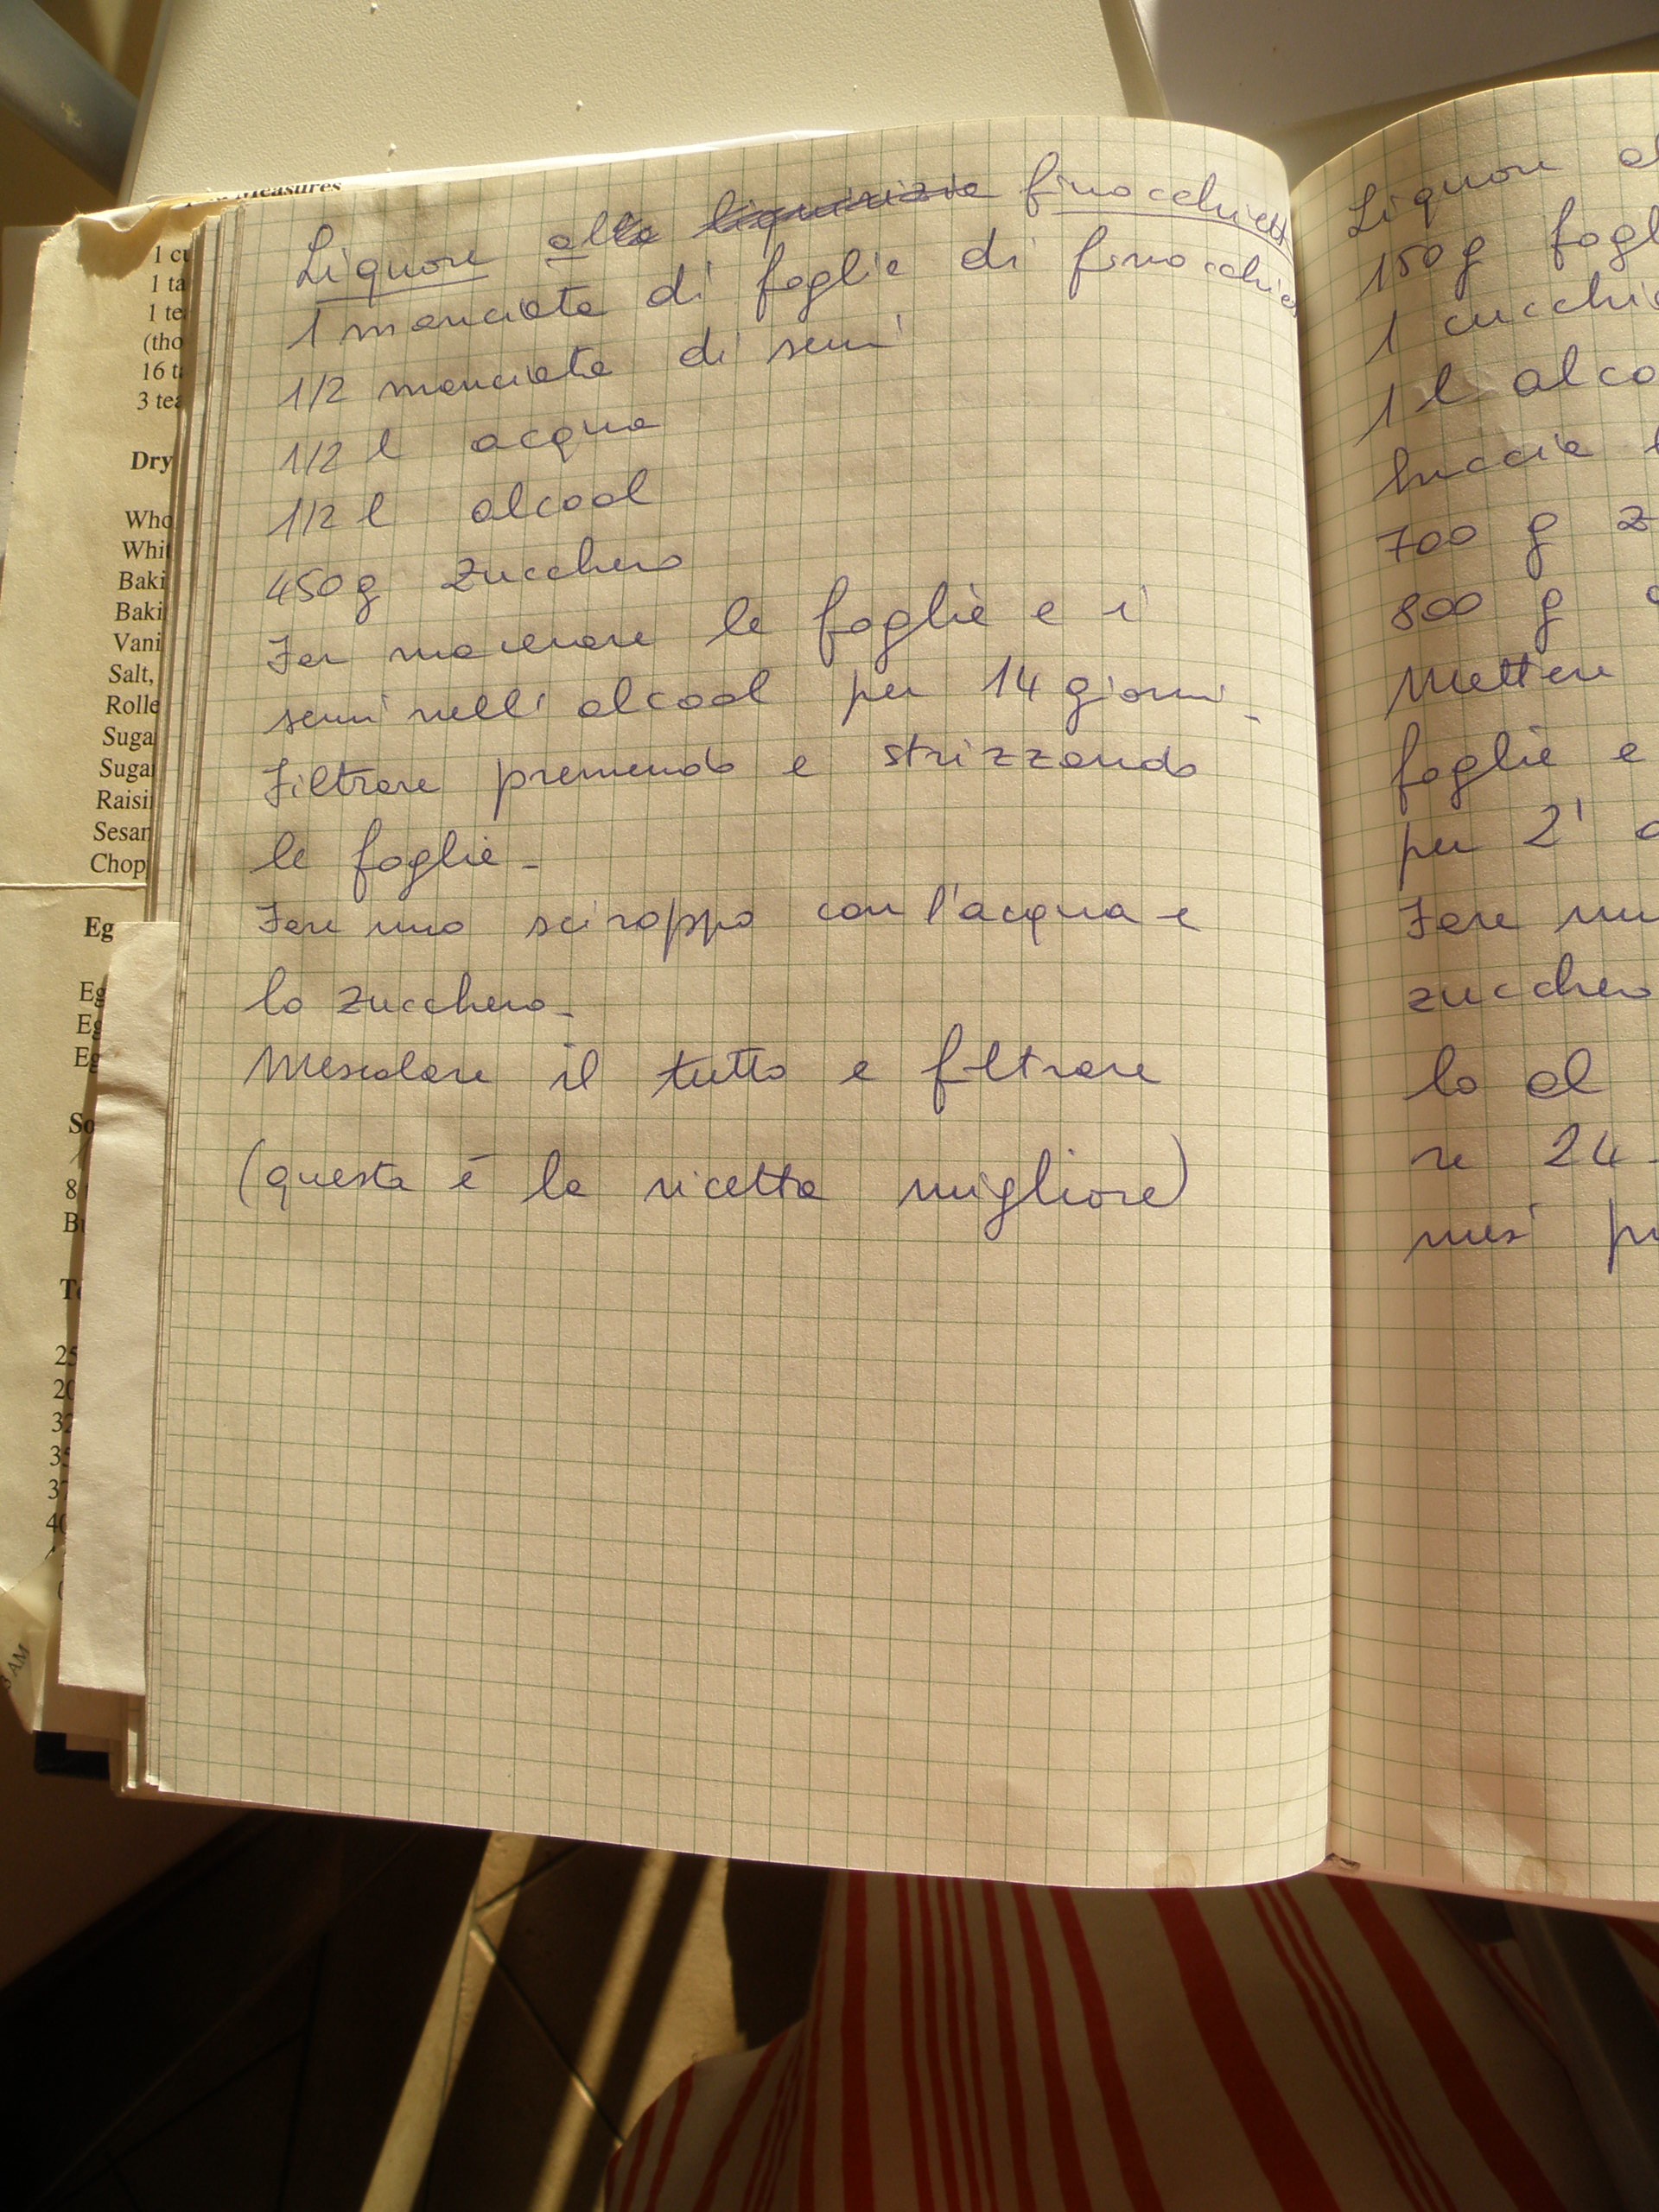 Measures
1 cu
1 ta
1 te
(tho
16 t
3 tea
Dry
Who
Whit
Baki
Baki
Vani
Salt,
Rolle
Suga
Suga
Raisi
Sesam
Chop
Eg
Eg
Eg
Eg
So
8
B
T
25
20
32
35
37
40
3 AM
Liquore alla liquirizia finocchietto
1 manciata di foglie di finocchietto
1/2 manciata di semi
1/2 l acqua
1/2 l alcool
450g zucchero
Far macerare le foglie e i
semi nell' alcool per 14 giorni -
Filtrare premendo e strizzando
le foglie -
Fare uno sciroppo con l'acqua e
lo zucchero -
Mescolare il tutto e filtrare
(questa è la ricetta migliore)
Liquore al
150g fogl
1 cucchia
1 l alco
buccia l
700 g z
800 g
Mettere
foglie e
per 2'
Fare un
zucchero
lo al
re 24-
mesi pr